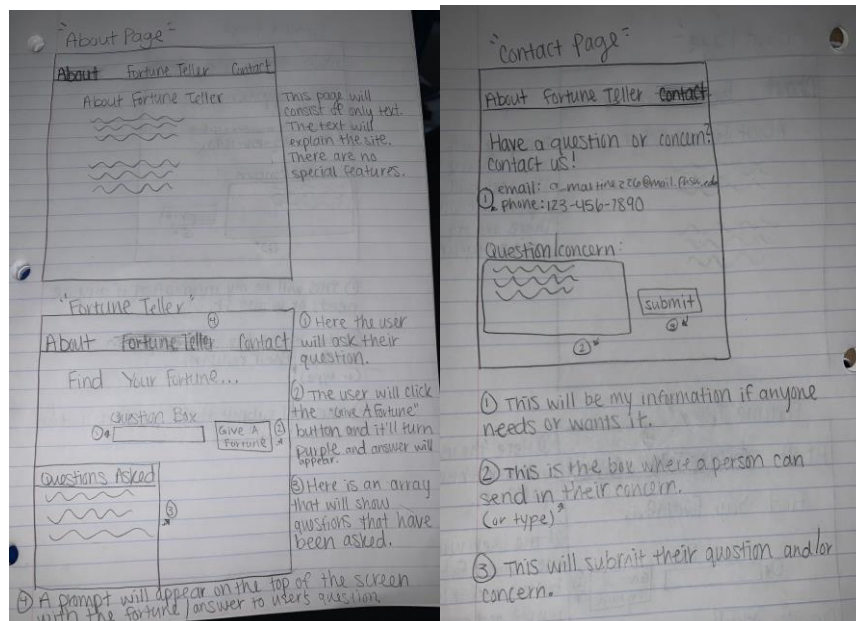 "About Page"
About Fortune Teller Contact
About Fortune Teller
This page will
consist of only text.
The text will
explain the site.
There are no
special features.
"Fortune Teller"
④
About Fortune Teller Contact
Find Your Fortune...
Question Box
①
Give A
Fortune
②
Questions Asked
③
① Here the user
will ask their
question.
② The user will click
the "Give A Fortune"
button and it'll turn
purple and answer will
appear.
③ Here is an array
that will show
questions that have
been asked.
④ A prompt will appear on the top of the screen
with the fortune/answer to users question.
"Contact Page"
About Fortune Teller Contact
Have a question or concern?
contact us!
①
email:
phone: 123-456-7890
Question/concern:
submit
②
① This will be my information if anyone
needs or wants it.
② This is the box where a person can
send in their concern.
(or type)
③ This will submit their question and/or
concern.